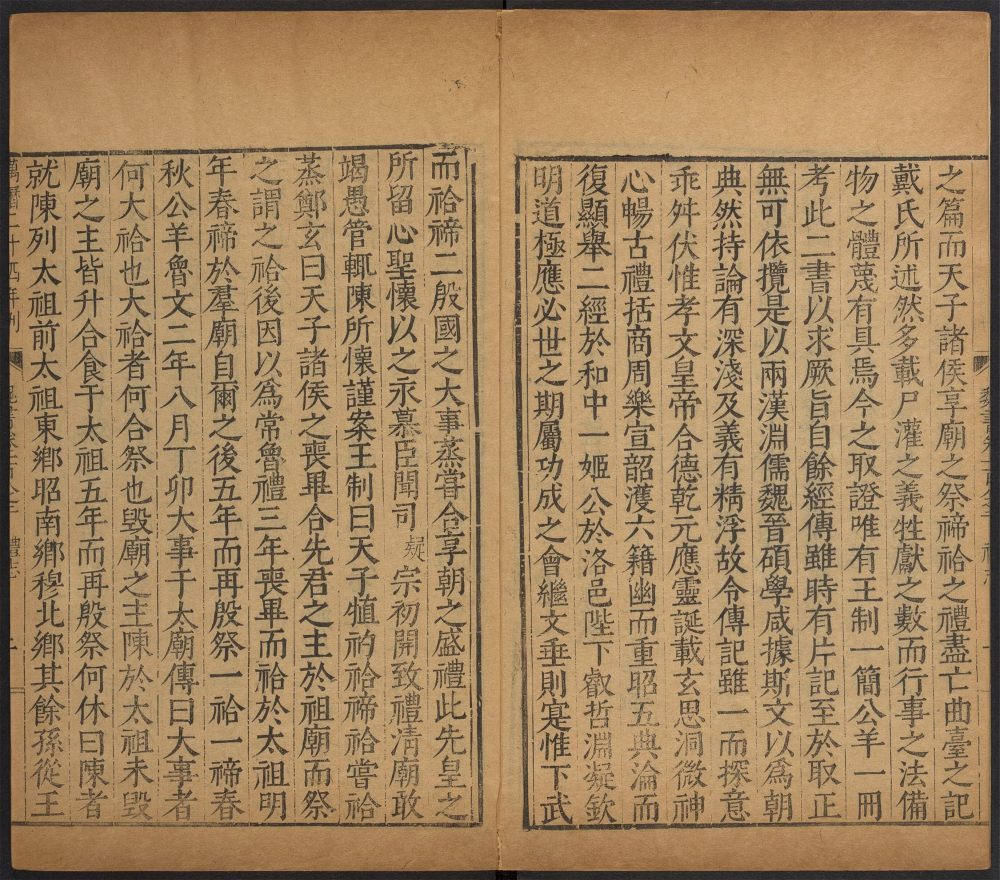 之篇而天子諸侯享廟之祭禘祫之禮盡亡曲臺之記
戴氏所述然多載尸灌之義牲獻之數而行事之法備
物之體蔑有具焉今之取證唯有王制一簡公羊一冊
考此二書以求厥旨自餘經傳雖時有片記至於取正
無可依攬是以兩漢淵儒魏晉碩學咸據斯文以爲朝
典然持論有深淺及義有精浮故令傳記雖一而探意
乖舛伏惟孝文皇帝合德乾元應靈誕載玄思洞微神
心暢古禮括商周樂宣韶濩六籍幽而重昭五典淪而
復顯舉二經於和中一姬公於洛邑陛下叡哲淵凝欽
明道極應必世之期屬功成之會繼文垂則寔惟下武
而祫禘二殷國之大事蒸嘗合享朝之盛禮此先皇之
所留心聖懷以之永慕臣聞司 疑 宗初開致禮清廟敢
竭愚管輒陳所懷謹案王制曰天子犆礿祫禘祫嘗祫
蒸鄭玄曰天子諸侯之喪畢合先君之主於祖廟而祭
之謂之祫後因以爲常魯禮三年喪畢而祫於太祖明
年春禘於羣廟自爾之後五年而再殷祭一祫一禘春
秋公羊魯文二年八月丁卯大事于太廟傳曰大事者
何大祫也大祫者何合祭也毀廟之主陳於太祖未毀
廟之主皆升合食于太祖五年而再殷祭何休曰陳者
就陳列太祖前太祖東鄉昭南鄉穆北鄉其餘孫從王
萬曆二十四年刊
禮志